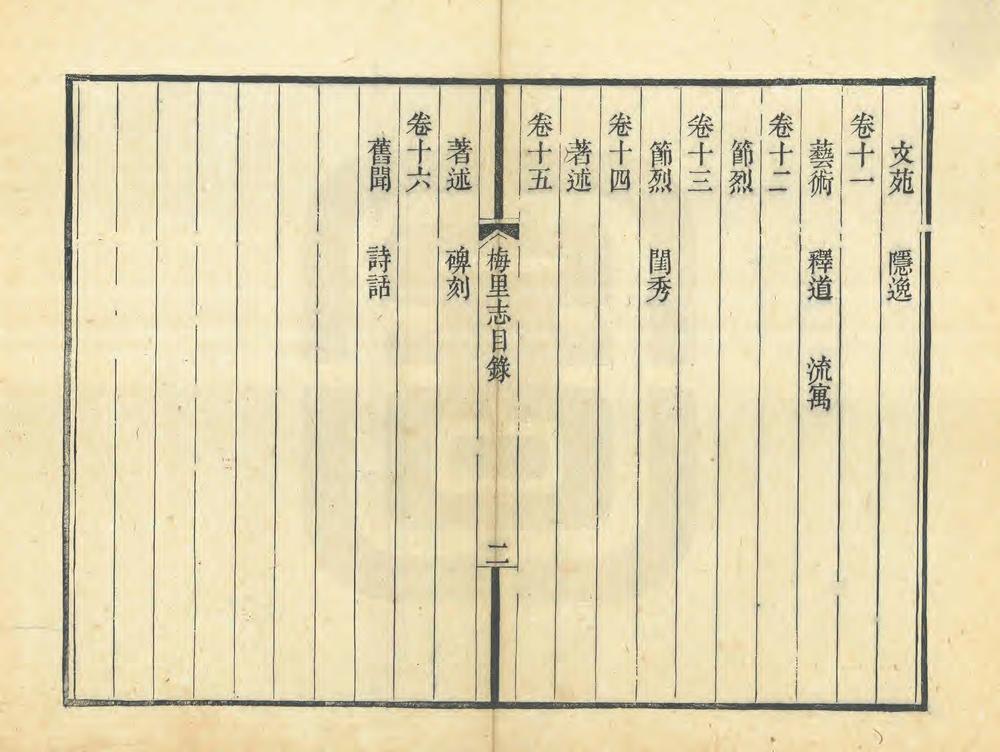 文苑　隱逸
卷十一
藝術　釋道　流寓
卷十二
節烈
卷十三
節烈　閨秀
卷十四
著述
卷十五
梅里志目錄　二
著述　碑刻
卷十六
舊聞　詩話